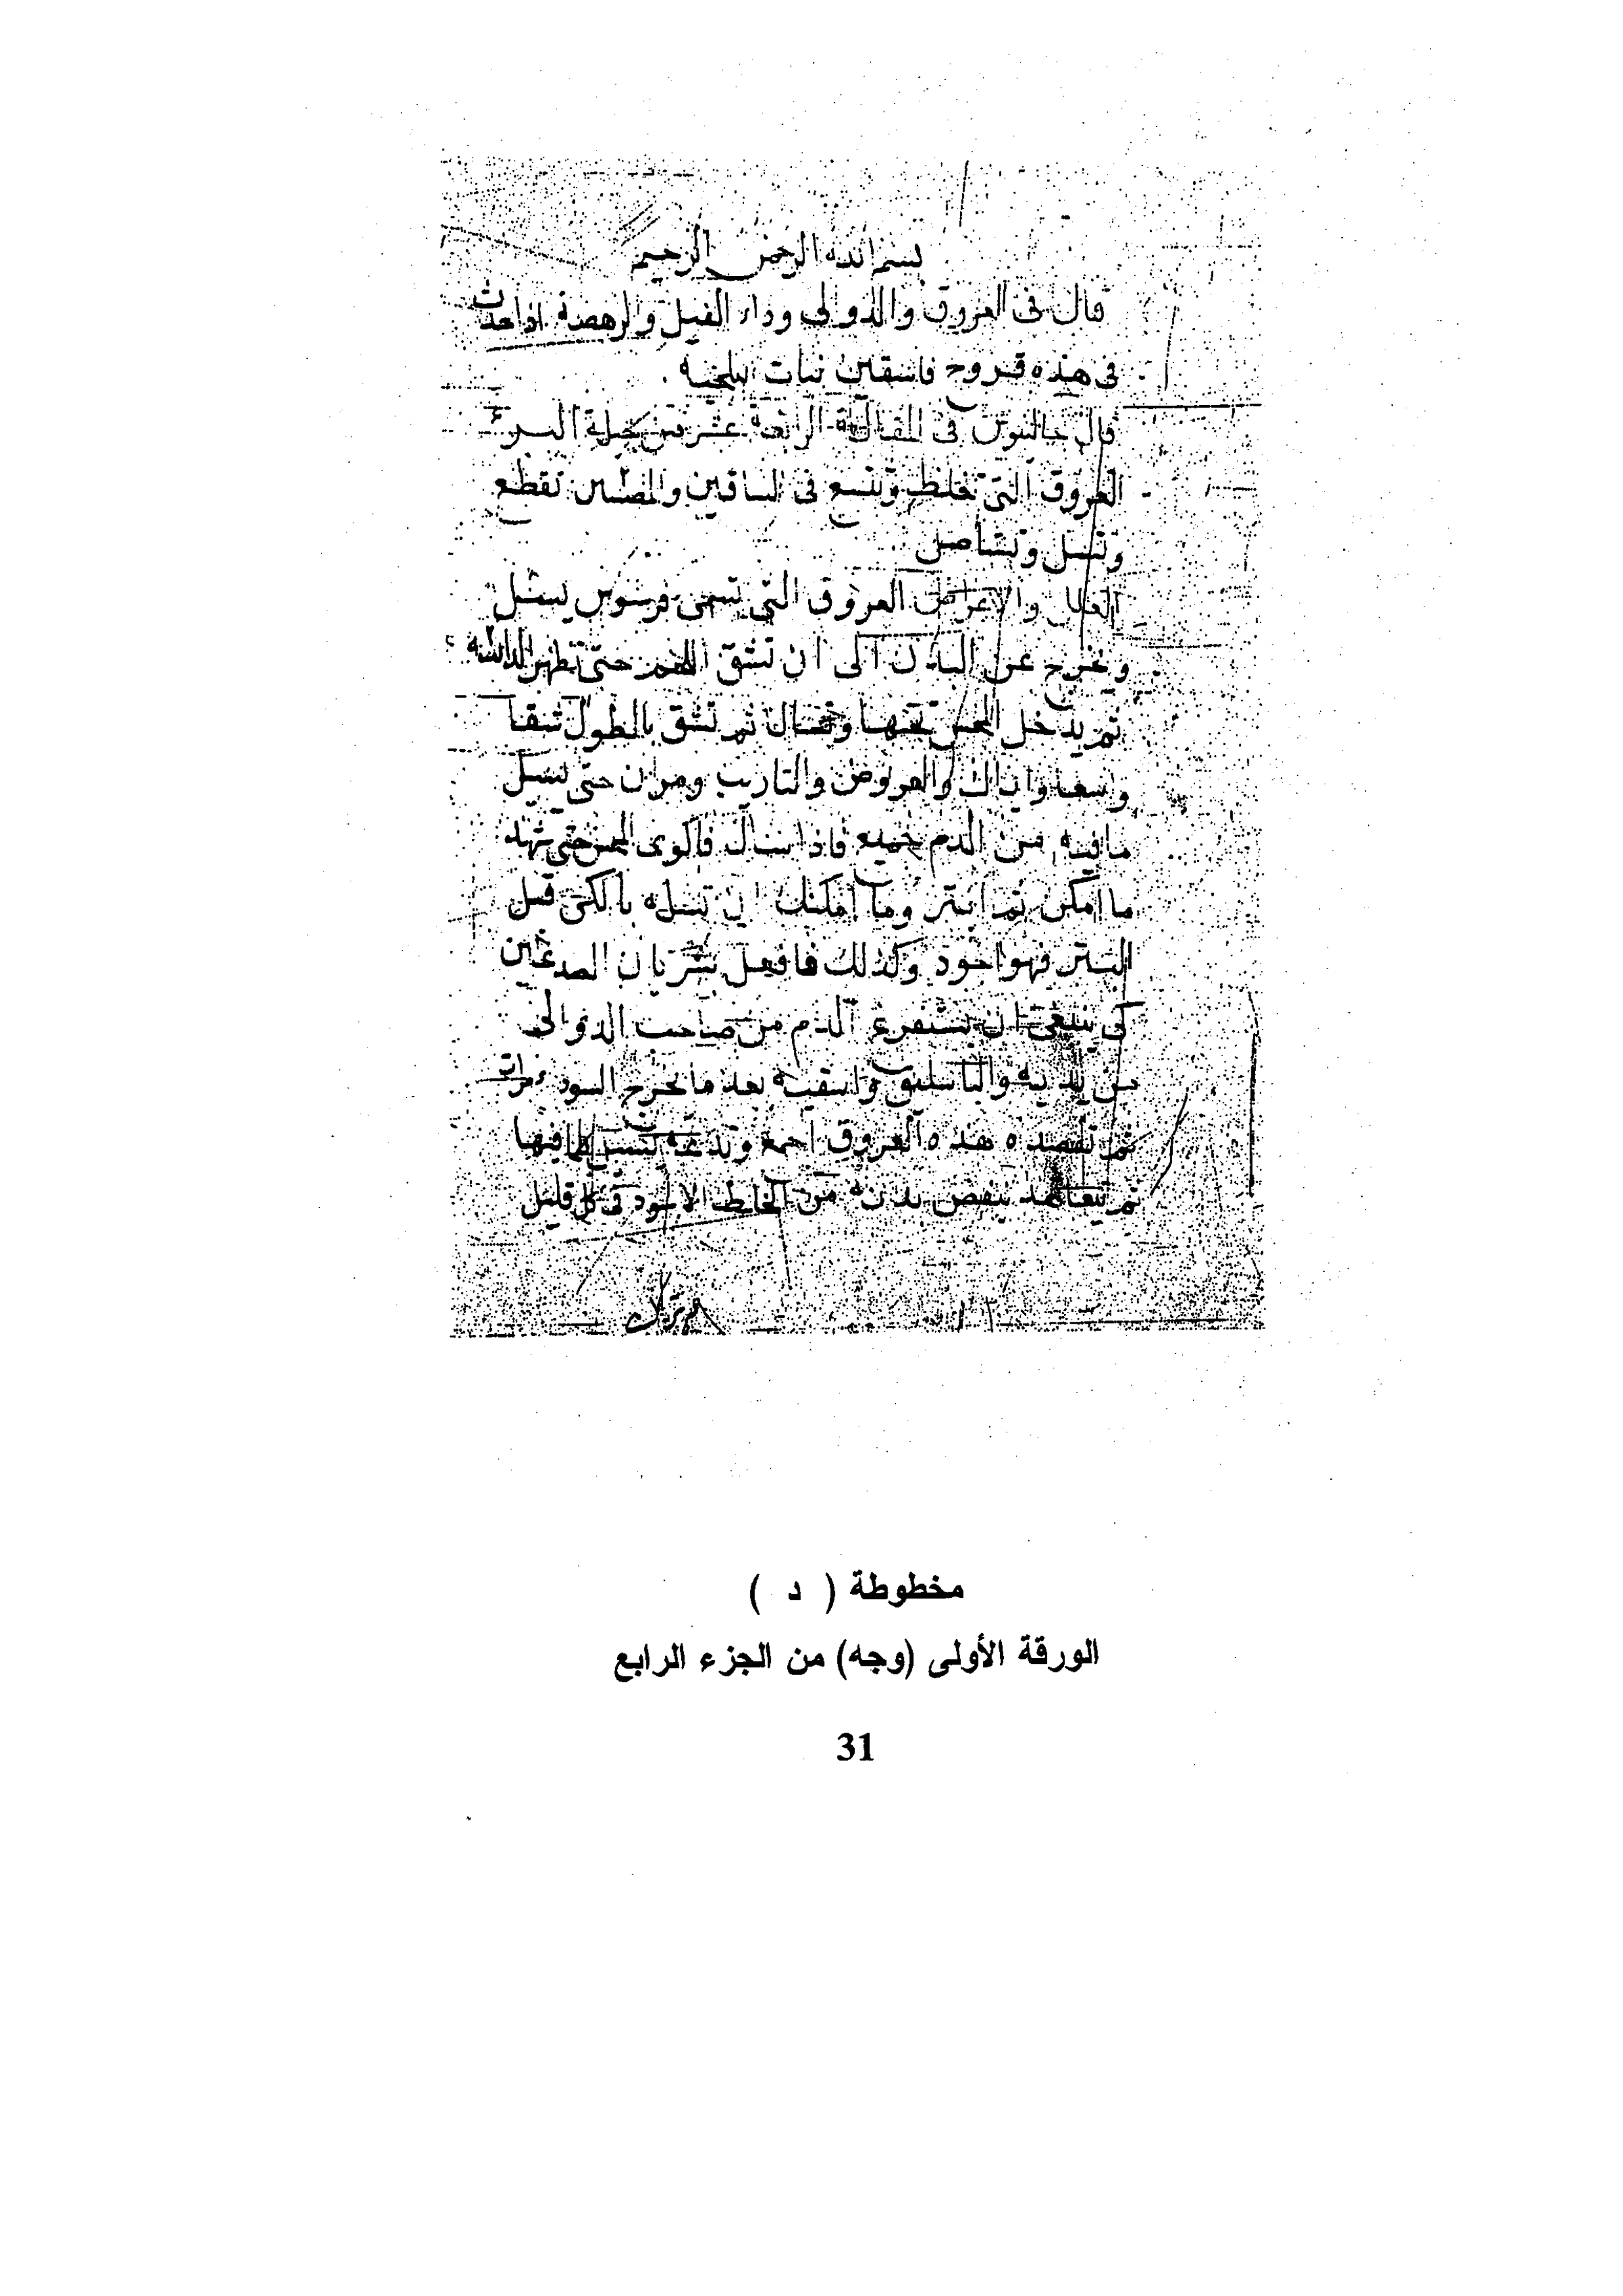 بسم الله الرحمن الرحيم
قال فى العروق والدوالى وداء الفيل والرهصة اذا حدث
فى هذه قروح فاسقين نبات اللحية
قال جالينوس فى المقالة الرابعة عشر من حيلة البرء
العروق التى تغلظ وتتسع فى الساقين تقطع
وتسل وتستاصل
العلل والاعراض العروق التى تسمى يسل
وتخرج عن البدن الى ان تشق الجلد حتى تظهر
ثم يدخل تحتها ثم تشق بالطول شقا
واسعا واياك والعروض والتاريب ومران حتى تسيل
ما فيه من الدم جميع فاذا سال
ما امكن ثم ابتر وما امكنك ان تسله بالكى قبل
البتر فهو اجود وكذلك فافعل بشريان الصدغين
كى ينبغى ان يستفرغ الدم من صاحب الدوالى
من يديه والباسليق واسقيه بعد ما يخرج السوداء مرات
ثم تفصده هذه العروق اجمع وتدعه يسيل ما فيها
ثم تتعاهد ينفض بدنه من الخلط الاسود فى كل قليل
مخطوطة ( د )
الورقة الأولى (وجه) من الجزء الرابع
31